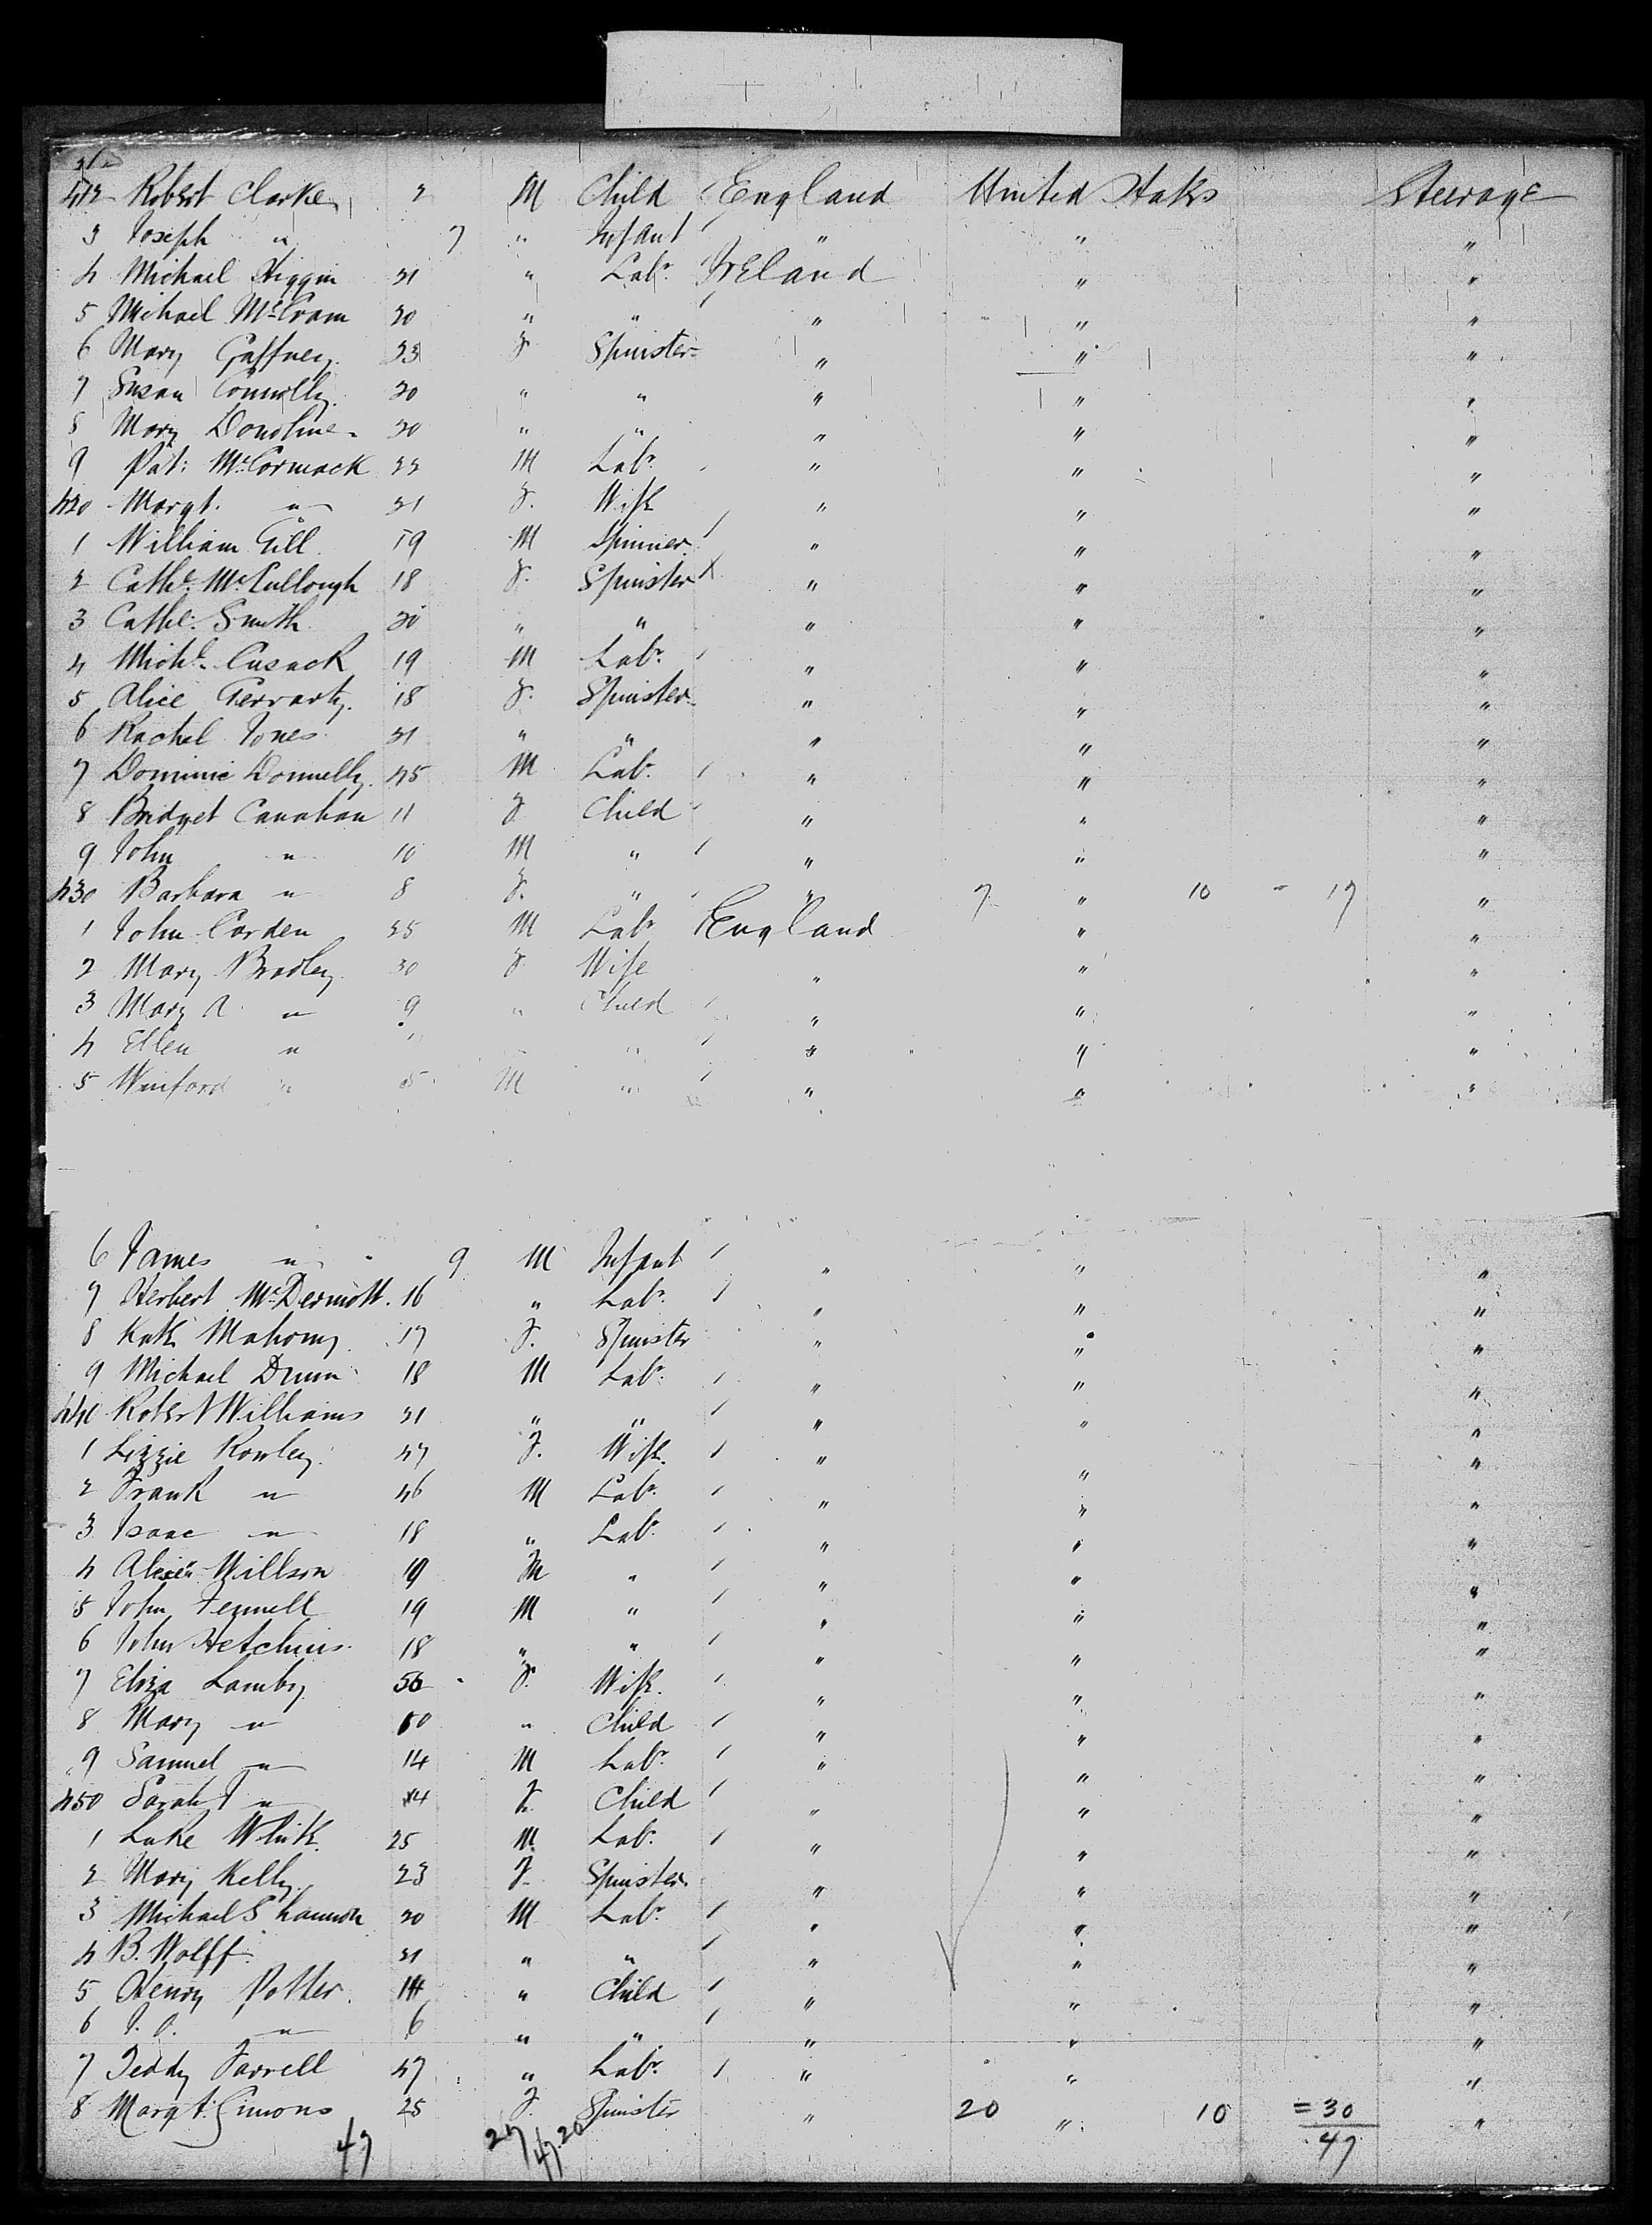 412 Robert Clarke 2 M Child England United States Steerage
3 Joseph " 7 " Infant " " "
4 Michael Higgin 21 " Labr Ireland " "
5 Michael McCram 20 " " " " "
6 Mary Gaffney 23 F Spinster " " "
7 Susan Connolly 20 " " " " "
8 Mary 20 " " " " "
9 Pat: McCormack 22 M Labr " " "
420 Margt. " 21 F. Wife " " "
1 William Gill 19 M Spinner " " "
2 Cathe. McCullough 18 F. Spinster " " "
3 Cathe. Smith 20 " " " " "
4 Michl. Cusack 19 M Labr. " " "
5 Alice Gerrarty 18 F. Spinster " " "
6 Rachel Jones 21 " " " " "
7 Dominic Donnelly 45 M Labr. " " "
8 Bridget Canahan 11 F Child " " "
9 John " 10 M " " " "
430 Barbara " 8 F. " " 7 " 10 = 17 "
1 John Corden 25 M Labr England " "
2 Mary Bradley 30 F Wife " " "
3 Mary A " 9 " Child " " "
4 Ellen " " " " " "
5 Winford " 5 M " " " "
6 James " 9 M Infant " " "
7 Herbert McDermott. 16 " Labr. " " "
8 Kate Mahony 17 F. Spinster " " "
9 Michael Drum 18 M Labr. " " "
440 Robert Williams 21 " " " " "
1 Lizzie Rowley 47 F. Wife. " " "
2 Frank " 46 M Labr. " " "
3 Isaac " 18 " Labr. " " "
4 Willson 19 M " " " "
5 John Fennell 19 M " " " "
6 John Hetchins 18 " " " " "
7 Eliza Lamby 56 F. Wife. " " "
8 Mary " " Child " " "
9 Samuel " 14 M Labr. " " "
450 Sarah J " 14 F. Child " " "
1 Luke White 25 M Labr. " " "
2 Mary Kelly 23 F Spinster " " "
3 Michael Shannon 20 M Labr. " " "
4 B. Wolff 21 " " " " "
5 Henry Potter 14 " Child " " "
6 " 6 " " " " "
7 Teddy Farrell 47 " Labr. " " "
8 Margt. Simons 25 F. Spinster " 20 " 10 = 30 "
47 27 47 20 47